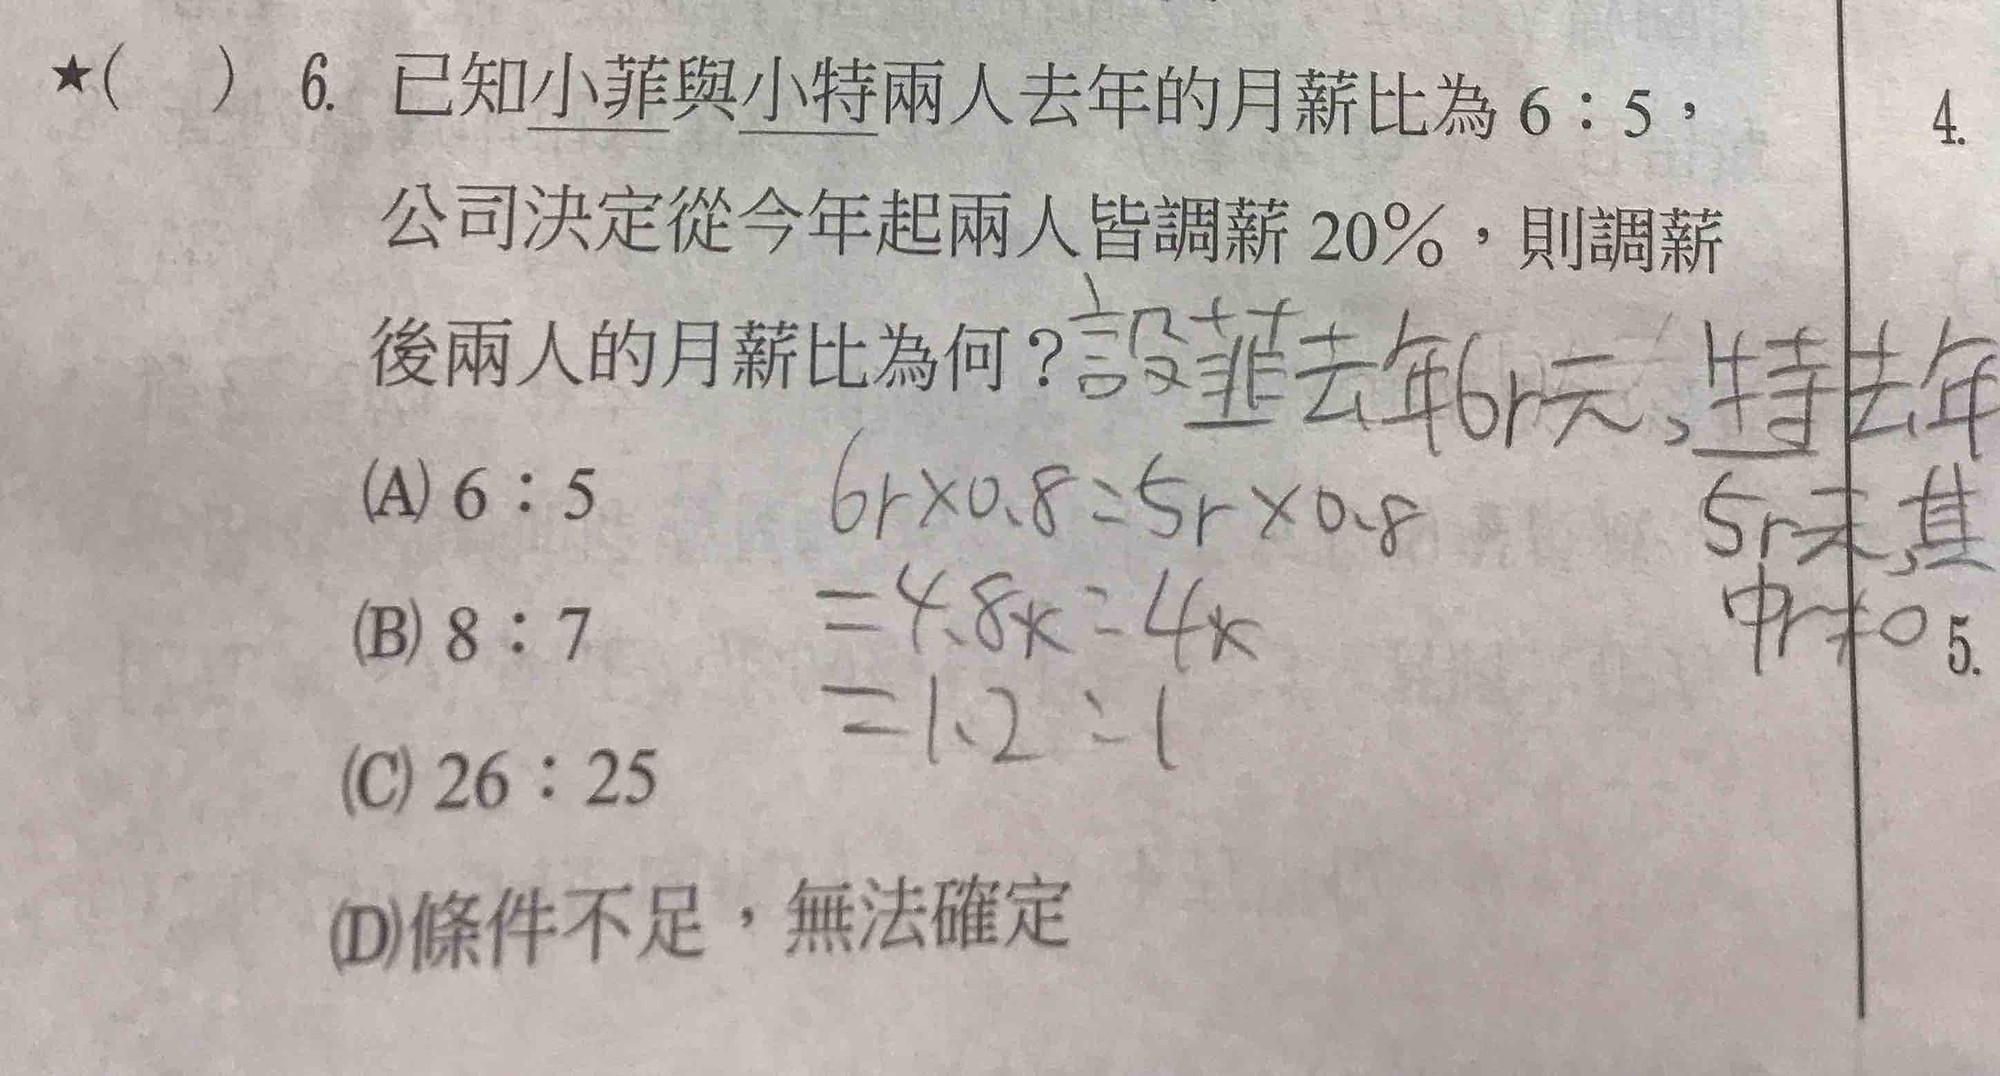 ★(　) 6. 已知小菲與小特兩人去年的月薪比為6：5，
公司決定從今年起兩人皆調薪20%，則調薪
後兩人的月薪比為何？
設菲去年6r元、特去年
5r元,其
中r≠0
(A) 6：5
6r×0.8:5r×0.8
(B) 8：7
=4.8r:4r
=1.2:1
(C) 26：25
(D)條件不足，無法確定
4.
5.